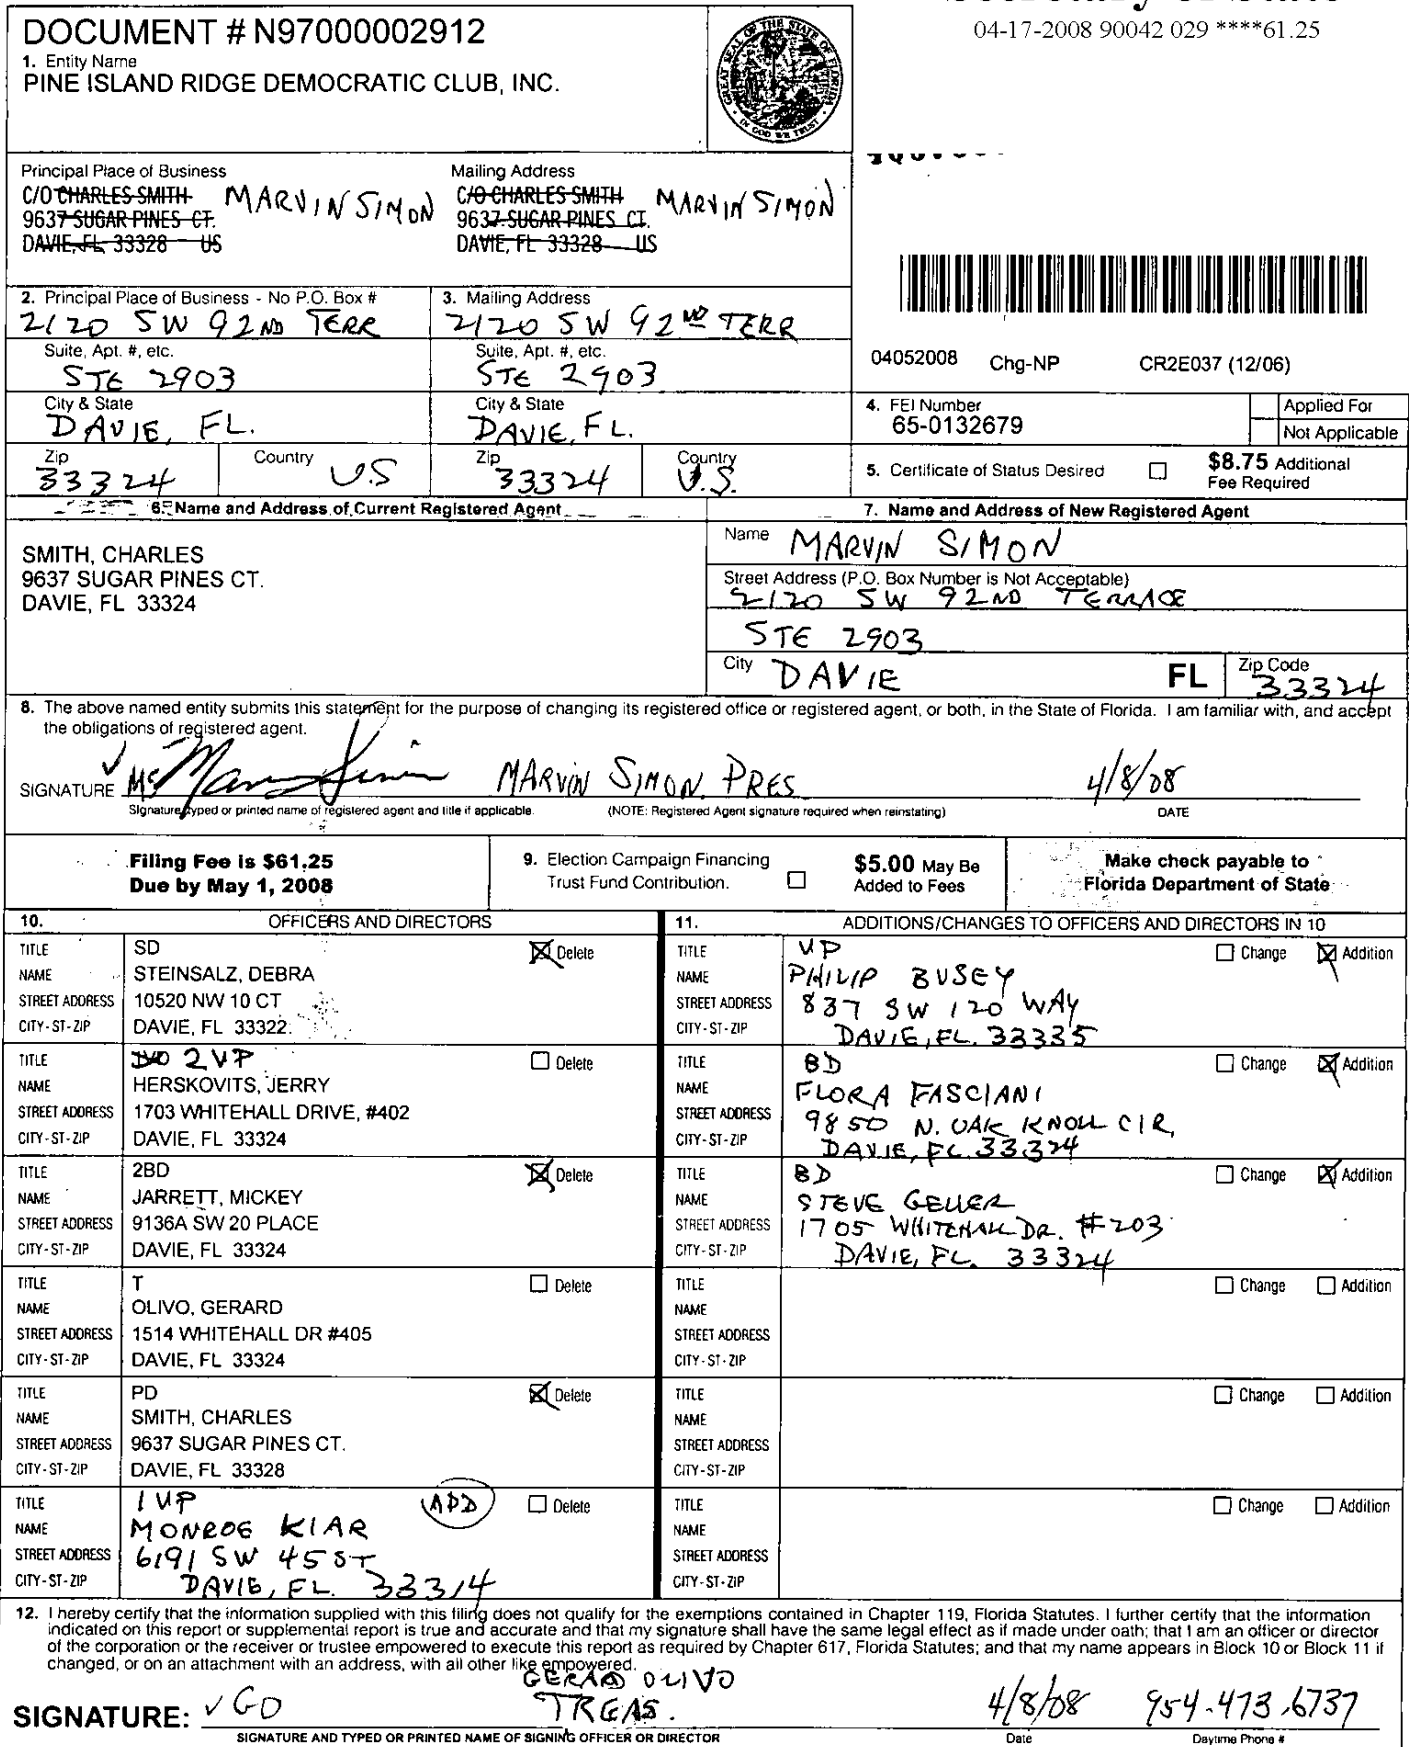 04-17-2008 90042 029 ****61.25
DOCUMENT # N97000002912
1. Entity Name
PINE ISLAND RIDGE DEMOCRATIC CLUB, INC.
GREAT SEAL OF THE STATE OF FLORIDA
IN GOD WE TRUST
Principal Place of Business
C/O CHARLES SMITH MARVIN SIMON
9637 SUGAR PINES CT.
DAVIE, FL 33328 US
Mailing Address
C/O CHARLES SMITH MARVIN SIMON
9637 SUGAR PINES CT.
DAVIE, FL 33328 US
2. Principal Place of Business - No P.O. Box #
2120 SW 92ND TERR
3. Mailing Address
2120 SW 92ND TERR
Suite, Apt. #, etc.
STE 2903
Suite, Apt. #, etc.
STE 2903
04052008 Chg-NP CR2E037 (12/06)
City & State
DAVIE, FL.
City & State
DAVIE, FL.
4. FEI Number
65-0132679
Applied For
Not Applicable
Zip
33324
Country
U.S
Zip
33324
Country
U.S.
5. Certificate of Status Desired
$8.75 Additional
Fee Required
6. Name and Address of Current Registered Agent
SMITH, CHARLES
9637 SUGAR PINES CT.
DAVIE, FL 33324
7. Name and Address of New Registered Agent
Name MARVIN SIMON
Street Address (P.O. Box Number is Not Acceptable)
2120 SW 92ND TERRACE
STE 2903
City DAVIE FL Zip Code 33324
8. The above named entity submits this statement for the purpose of changing its registered office or registered agent, or both, in the State of Florida. I am familiar with, and accept
the obligations of registered agent.
SIGNATURE MS Marvin Simon MARVIN SIMON. PRES 4/8/08
Signature, typed or printed name of registered agent and title if applicable. (NOTE: Registered Agent signature required when reinstating) DATE
Filing Fee is $61.25
Due by May 1, 2008
9. Election Campaign Financing
Trust Fund Contribution.
$5.00 May Be
Added to Fees
Make check payable to
Florida Department of State
10. OFFICERS AND DIRECTORS
TITLE SD Delete
NAME STEINSALZ, DEBRA
STREET ADDRESS 10520 NW 10 CT
CITY-ST-ZIP DAVIE, FL 33322
TITLE 2 VP Delete
NAME HERSKOVITS, JERRY
STREET ADDRESS 1703 WHITEHALL DRIVE, #402
CITY-ST-ZIP DAVIE, FL 33324
TITLE 2BD Delete
NAME JARRETT, MICKEY
STREET ADDRESS 9136A SW 20 PLACE
CITY-ST-ZIP DAVIE, FL 33324
TITLE T Delete
NAME OLIVO, GERARD
STREET ADDRESS 1514 WHITEHALL DR #405
CITY-ST-ZIP DAVIE, FL 33324
TITLE PD Delete
NAME SMITH, CHARLES
STREET ADDRESS 9637 SUGAR PINES CT.
CITY-ST-ZIP DAVIE, FL 33328
TITLE 1 VP ADD Delete
NAME MONROE KIAR
STREET ADDRESS 6191 SW 45 ST
CITY-ST-ZIP DAVIE, FL. 33314
11. ADDITIONS/CHANGES TO OFFICERS AND DIRECTORS IN 10
TITLE VP Change Addition
NAME PHILIP BUSEY
STREET ADDRESS 837 SW 120 WAY
CITY-ST-ZIP DAVIE, FL. 33335
TITLE BD Change Addition
NAME FLORA FASCIANI
STREET ADDRESS 9850 N. OAK KNOLL CIR,
CITY-ST-ZIP DAVIE, FL. 33324
TITLE BD Change Addition
NAME STEVE GELLER
STREET ADDRESS 1705 WHITEHALL DR. #203
CITY-ST-ZIP DAVIE, FL. 33324
TITLE Change Addition
NAME
STREET ADDRESS
CITY-ST-ZIP
TITLE Change Addition
NAME
STREET ADDRESS
CITY-ST-ZIP
TITLE Change Addition
NAME
STREET ADDRESS
CITY-ST-ZIP
12. I hereby certify that the information supplied with this filing does not qualify for the exemptions contained in Chapter 119, Florida Statutes. I further certify that the information
indicated on this report or supplemental report is true and accurate and that my signature shall have the same legal effect as if made under oath; that I am an officer or director
of the corporation or the receiver or trustee empowered to execute this report as required by Chapter 617, Florida Statutes; and that my name appears in Block 10 or Block 11 if
changed, or on an attachment with an address, with all other like empowered.
GERARD OLIVO
SIGNATURE: GO TREAS. 4/8/08 954.473.6737
SIGNATURE AND TYPED OR PRINTED NAME OF SIGNING OFFICER OR DIRECTOR Date Daytime Phone #